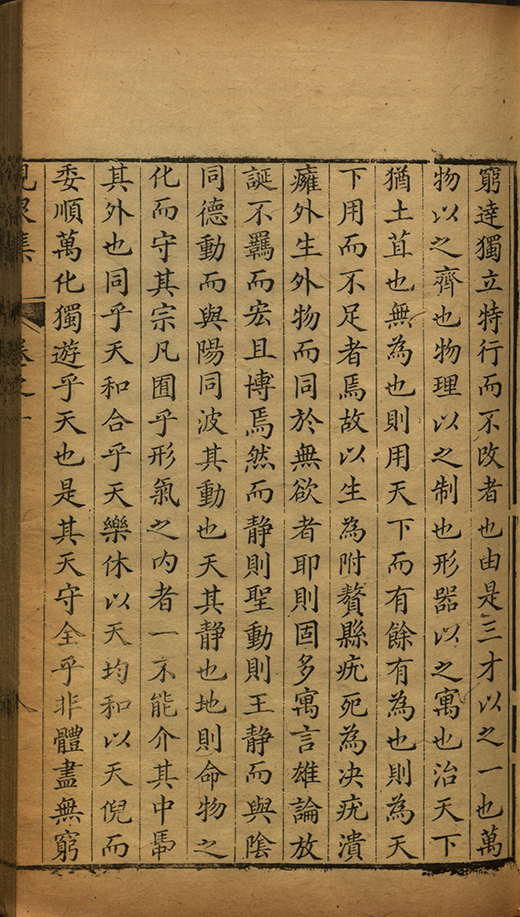 窮達獨立特行而不改者也由是三才以之一也萬
物以之齊也物理以之制也形器以之寓也治天下
猶土苴也無為也則用天下而有餘有為也則為天
下用而不足者焉故以生為附贅縣疣死為决疣潰
癰外生外物而同於無欲者耶則固多寓言雄論放
誕不羈而宏且博焉然而静則聖動則王静而與陰
同德動而與陽同波其動也天其静也地則命物之
化而守其宗凡囿乎形氣之内者一不能介其中焉
其外也同乎天和合乎天樂休以天均和以天倪而
委順萬化獨遊乎天也是其天守全乎非體盡無窮
峴泉集 卷之一 八